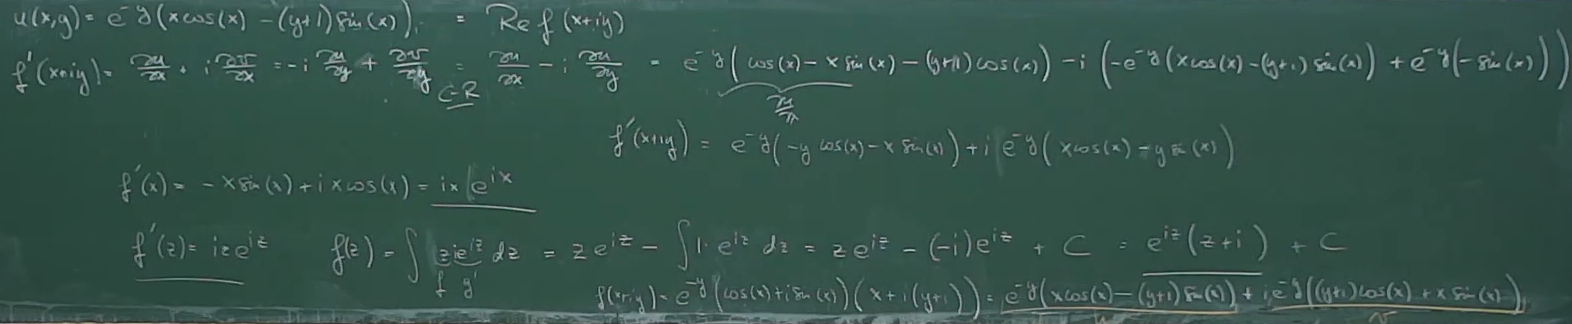 u(x,y) = e^{-y}(x cos(x) - (y+1) sin(x)), = Re f(x+iy)
f'(x+iy) = ∂u/∂x + i ∂v/∂x = -i ∂u/∂y + ∂v/∂y = ∂u/∂x - i ∂u/∂y = e^{-y}(cos(x) - x sin(x) - (y+1) cos(x)) - i(-e^{-y}(x cos(x) - (y+1) sin(x)) + e^{-y}(-sin(x)))
C-R
f'(x+iy) = e^{-y}(-y cos(x) - x sin(x)) + i e^{-y}(x cos(x) - y sin(x))
f'(x) = -x sin(x) + i x cos(x) = ix e^{ix}
f'(z) = ize^{iz} f(z) = ∫ z i e^{iz} dz = z e^{iz} - ∫ 1· e^{iz} dz = z e^{iz} - (-i)e^{iz} + C = e^{iz}(z+i) + C
f g'
f(x+iy) = e^{-y}(cos(x) + i sin(x))(x + i(y+1)) = e^{-y}(x cos(x) - (y+1) sin(x)) + i e^{-y}((y+1) cos(x) + x sin(x)),
u v